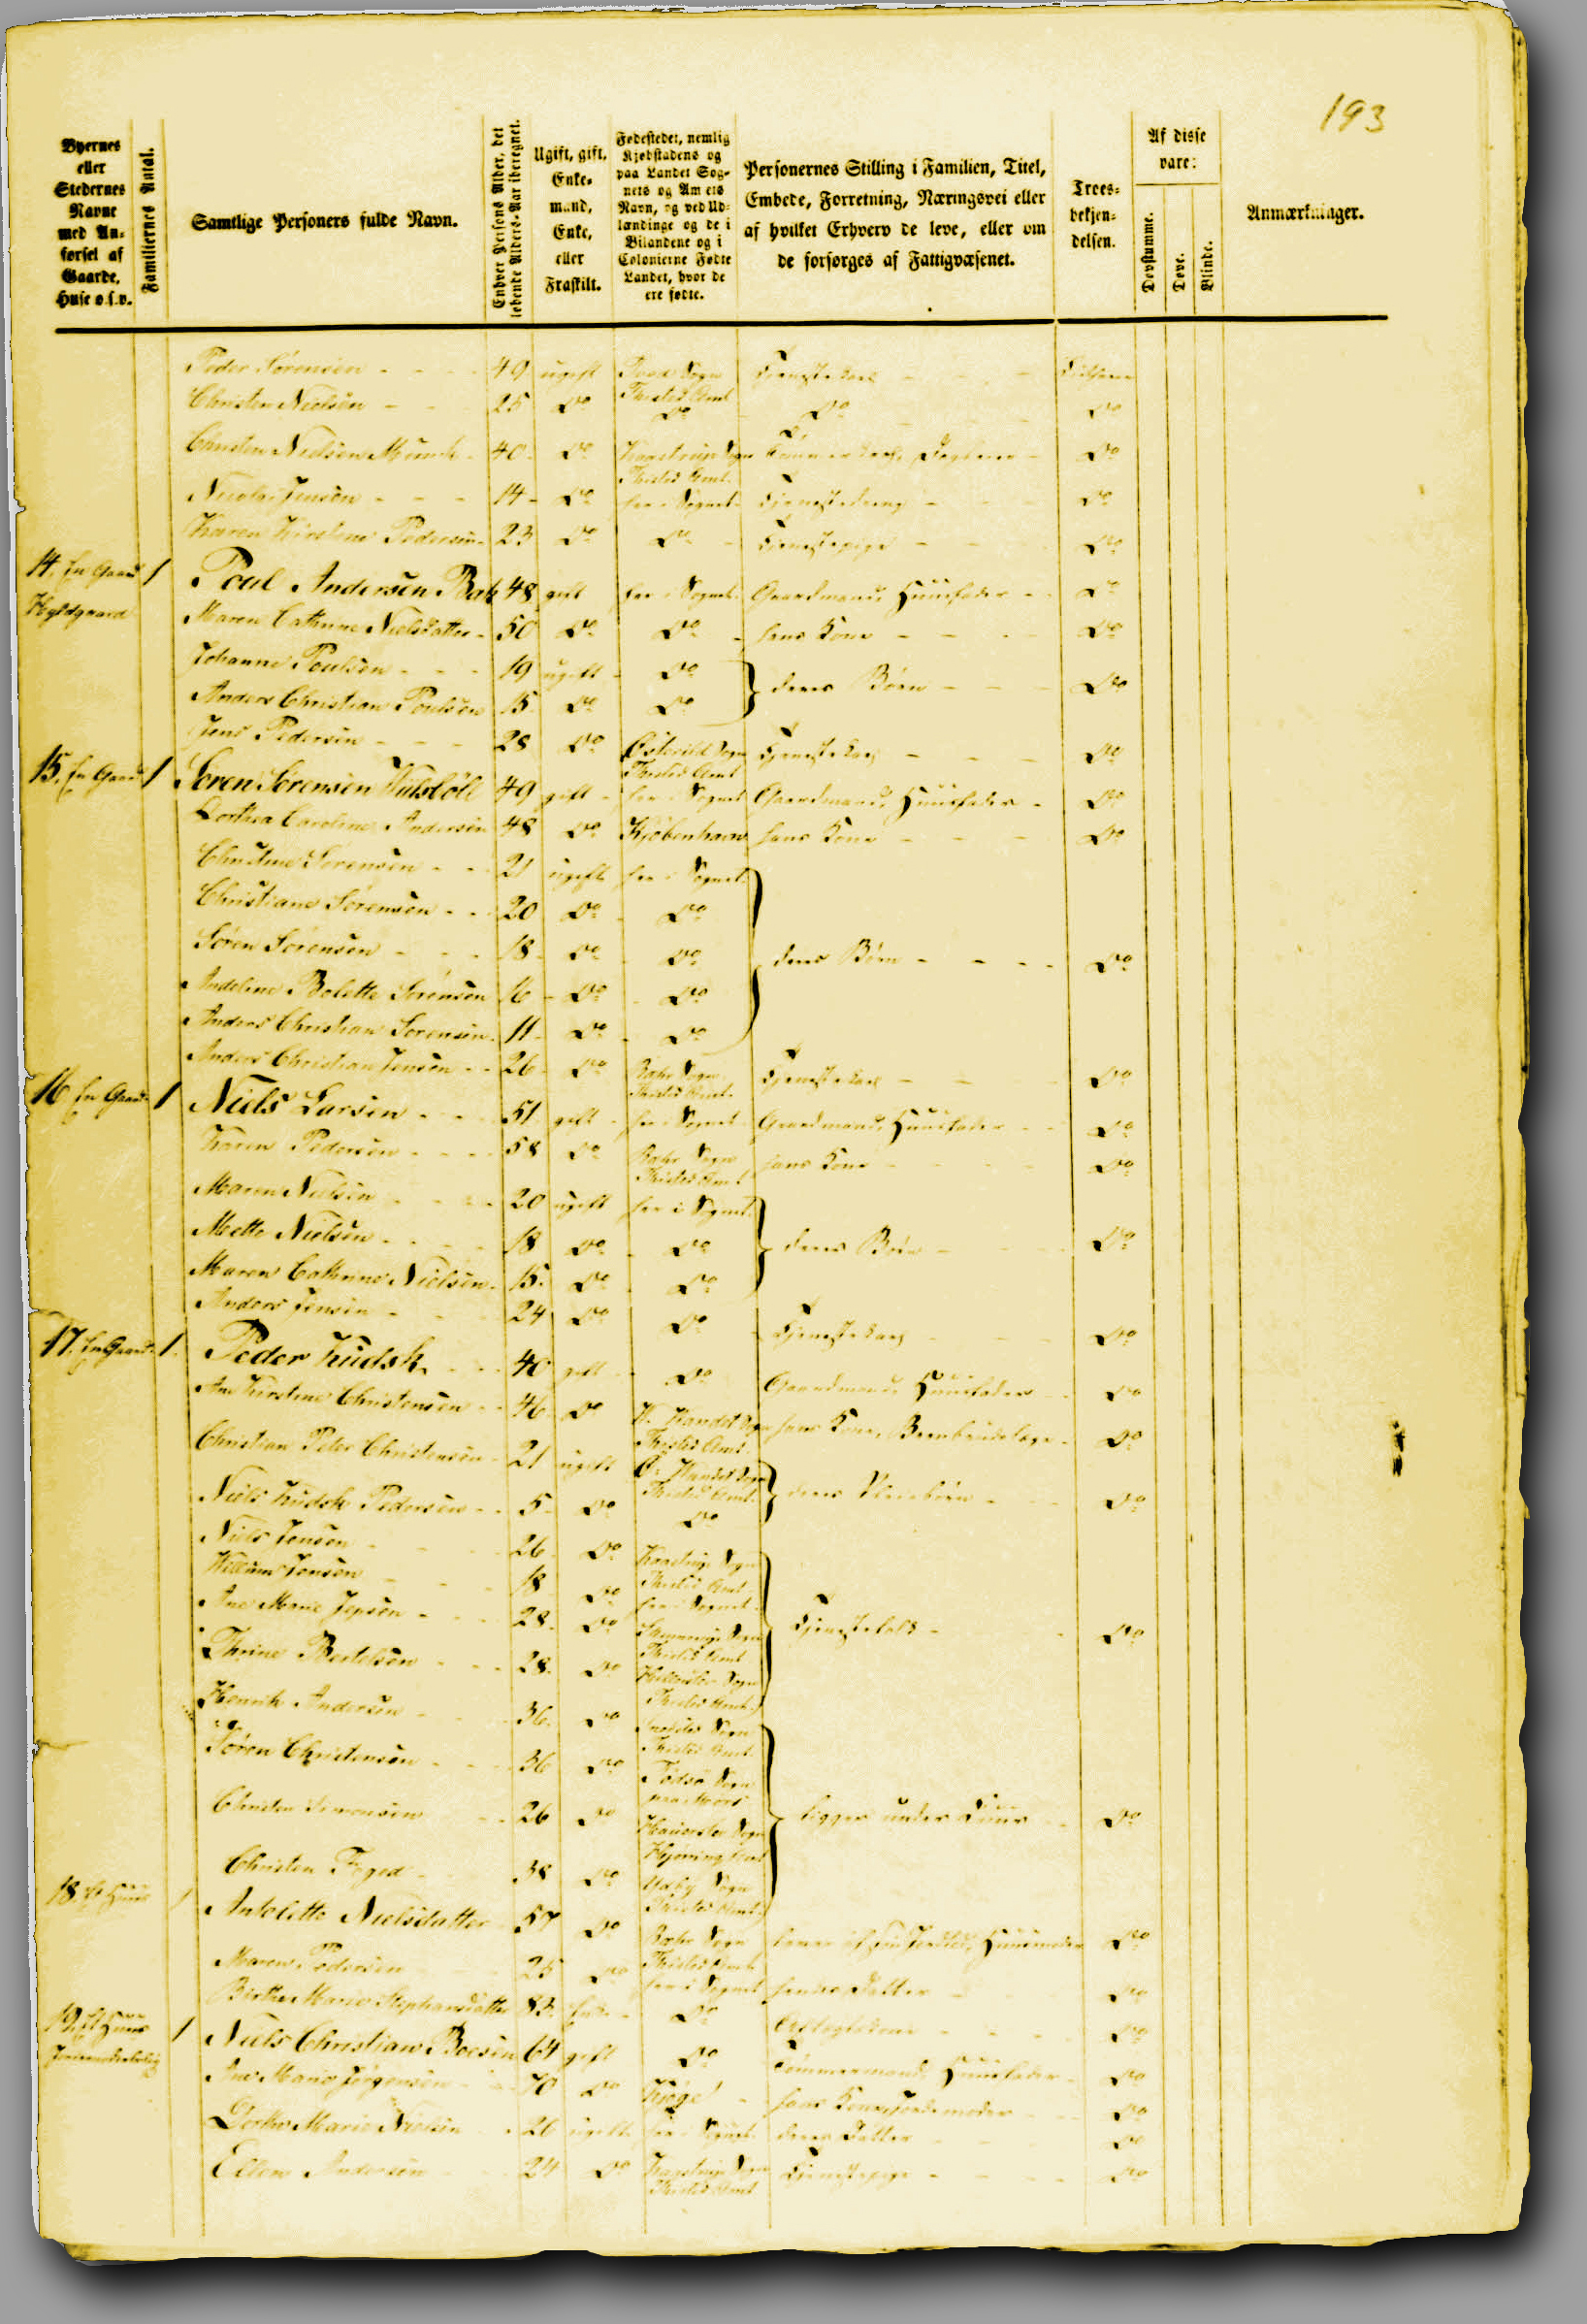 193
Byernes eller Stedernes Navne med Anførsel af Gaarde, Huse o.s.v.
Familiernes Antal.
Samtlige Personers fulde Navn.
Enhver Persons Alder, det løbende Alders-Aar iberegnet.
Ugift, gift, Enkemand, Enke, eller Fraskilt.
Fødestedet, nemlig Kjøbstadens og paa Landet Sognets og Amtets Navn, og ved Udlændinge og de i Bilandene og i Colonierne Fødte Landet, hvor de ere fødte.
Personernes Stilling i Familien, Titel, Embede, Forretning, Næringsvei eller af hvilket Erhverv de leve, eller om de forsørges af Fattigvæsenet.
Troesbekjendelsen.
Af disse vare:
Døvstumme.
Døve.
Blinde.
Anmærkninger.
Peder Sørensen 49 ugift Sogn Thisted Amt Tjenestekarl
Christen Nielsen 25 Do Do Do Do
Christen Nielsen Munch 40 Do Kaastrup Sogn Thisted Amt Do
Nicolai Jensen 14 Do her i Sognet Tjenestedreng Do
Karen Kirstine Pedersen 23 Do Do Tjenestepige Do
14. En Gaard 1 Poul Andersen Bak 48 gift her i Sognet Gaardmand, Huusfader Do
Maren Cathrine Nielsdatter 50 Do Do hans Kone Do
Johanne Poulsen 19 ugift Do
Anders Christian Poulsen 15 Do Do deres Børn Do
Jens Pedersen 28 Do Østerild Sogn Thisted Amt Tjenestekarl Do
15. En Gaard 1 Søren Sørensen 49 gift her i Sognet Gaardmand, Huusfader Do
Dorthea Caroline Andersen 48 Do Kjøbenhavn hans Kone Do
Christine Sørensen 21 ugift her i Sognet
Christiane Sørensen 20 Do Do
Søren Sørensen 18 Do Do deres Børn Do
Andeline Bolette Sørensen 16 Do Do
Anders Christian Sørensen 11 Do Do
Anders Christian Jensen 26 Do Sogn Thisted Amt Tjenestekarl Do
16 En Gaard 1 Niels Larsen 51 gift her i Sognet Gaardmand, Huusfader Do
Karen Pedersen 58 Do Sogn Thisted Amt hans Kone Do
Maren Nielsen 20 ugift her i Sognet
Mette Nielsen 18 Do Do deres Børn Do
Maren Cathrine Nielsen 15 Do Do
Anders Jensen 24 Do Do Tjenestekarl Do
17. En Gaard 1 Peder Kudsk 40 gift Do Gaardmand, Huusfader Do
Ane Kirstine Christensen 46 Do V. Vandet Sogn Thisted Amt hans Kone, Do
Christian Peter Christensen 21 ugift Ø. Vandet Sogn Thisted Amt deres Pleiebørn Do
Niels Kudsk Pedersen 5 Do Do
Niels Jensen 26 Do Kaastrup Sogn Thisted Amt
Willum Jensen 18 Do her i Sognet
Ane Marie Jepsen 28 Do Sogn Thisted Amt Tjenestefolk Do
Thrine Bertelsen 28 Do Hillerslev Sogn Thisted Amt
Henrik Andersen 36 Do Snedsted Sogn Thisted Amt
Søren Christensen 36 Do Sogn paa Mors
Christen Simonsen 26 Do Sogn Hjørring Amt ligger under Cuur Do
Christen Foged 38 Do Sogn Thisted Amt
18 Et Huus 1 Antolette Nielsdatter 57 Do Sogn Thisted Amt lever af sin Jordlod, Huusmoder Do
Maren Pedersen 25 Do her i Sognet hendes Datter Do
Birthe Marie Stephansdatter 83 Enke Do Aftægtskone Do
19. Et Huus 1 Niels Christian Boesen 64 gift Do Tømmermand, Huusfader Do
Ane Marie Jørgensen 70 Do Kjøge hans Kone, Jordemoder Do
Dorthe Marie Nielsen 26 ugift her i Sognet deres Datter Do
Ellen Andersen 24 Do Kaastrup Sogn Thisted Amt Tjenestepige Do